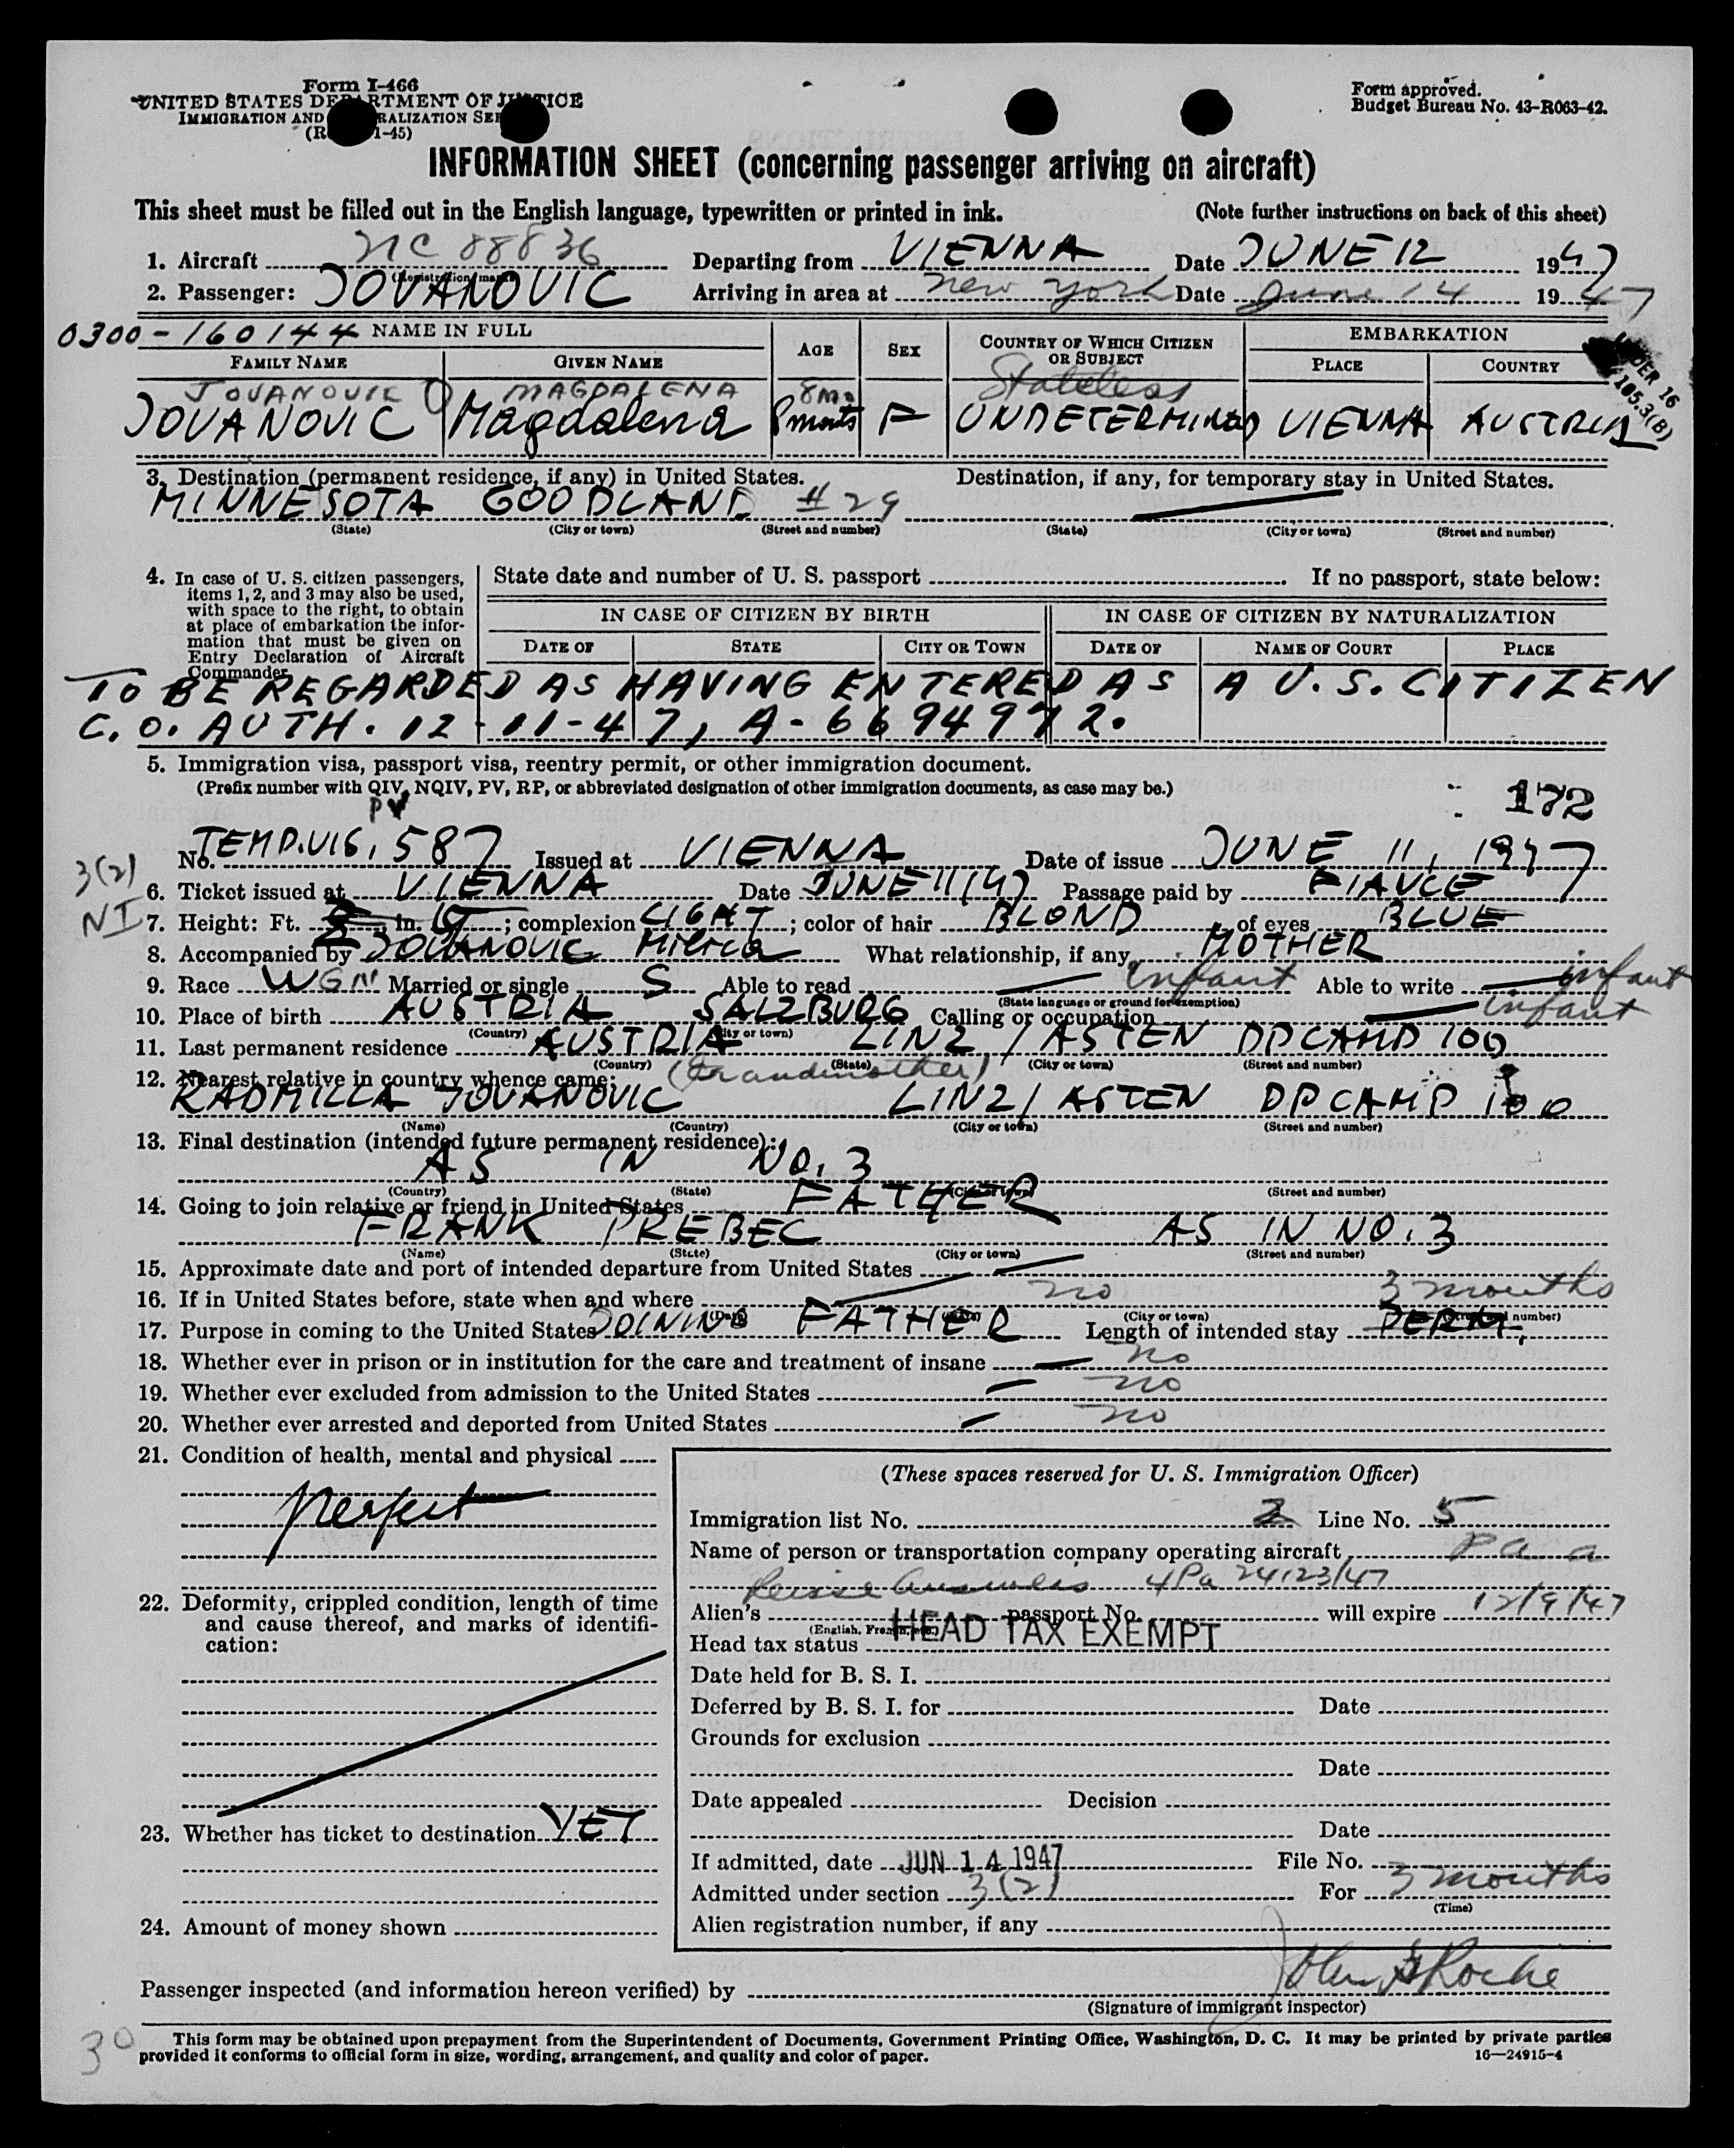 Form I-466
UNITED STATES DEPARTMENT OF JUSTICE
IMMIGRATION AND NATURALIZATION SER
1-45)
Form approved.
Budget Bureau No. 43-R063-42.
INFORMATION SHEET (concerning passenger arriving on aircraft)
This sheet must be filled out in the English language, typewritten or printed in ink. (Note further instructions on back of this sheet)
1. Aircraft NC 88836 (Registration mark) Departing from VIENNA Date JUNE 12 1947
2. Passenger: JOVANOVIC Arriving in area at New York Date June 14 1947
0300-160144 NAME IN FULL AGE SEX COUNTRY OF WHICH CITIZEN OR SUBJECT EMBARKATION
FAMILY NAME GIVEN NAME PLACE COUNTRY
UNDER 16
165.3(B)
JOVANOVIC MAGDALENA 8 mo Stateless
JOVANOVIC Magdalena 8 F UNDETERMINED VIENNA AUSTRIA
3. Destination (permanent residence, if any) in United States. Destination, if any, for temporary stay in United States.
MINNESOTA GOODLAND # 29
(State) (City or town) (Street and number) (State) (City or town) (Street and number)
4. In case of U. S. citizen passengers, items 1, 2, and 3 may also be used, with space to the right, to obtain at place of embarkation the information that must be given on Entry Declaration of Aircraft Commander
State date and number of U. S. passport If no passport, state below:
IN CASE OF CITIZEN BY BIRTH IN CASE OF CITIZEN BY NATURALIZATION
DATE OF STATE CITY OR TOWN DATE OF NAME OF COURT PLACE
TO BE REGARDED AS HAVING ENTERED AS A U.S. CITIZEN
C.O. AUTH. 12-11-47, A-6694972.
5. Immigration visa, passport visa, reentry permit, or other immigration document.
(Prefix number with QIV, NQIV, PV, RP, or abbreviated designation of other immigration documents, as case may be.)
PV
172
No. TEMP.VIS, 587 Issued at VIENNA Date of issue JUNE 11, 1947
3(2)
NI
6. Ticket issued at VIENNA Date JUNE 11/47 Passage paid by FIANCE
7. Height: Ft. in. ; complexion LIGHT ; color of hair BLOND of eyes BLUE
8. Accompanied by JOVANOVIC Milica What relationship, if any, MOTHER
9. Race W Married or single S Able to read infant Able to write infant
(State language or ground for exemption)
10. Place of birth AUSTRIA SALZBURG Calling or occupation infant
(Country) (City or town)
11. Last permanent residence AUSTRIA LINZ / ASTEN DPCAMP 100
(Country) (State) (City or town) (Street and number)
12. Nearest relative in country whence came: (Grandmother)
RADMILLA JOVANOVIC LINZ / ASTEN DPCAMP 100
(Name) (Country) (City or town) (Street and number)
13. Final destination (intended future permanent residence):
AS IN NO. 3
(Country) (State) (City or town) (Street and number)
14. Going to join relative or friend in United States FATHER
FRANK PREBEC AS IN NO. 3
(Name) (State) (City or town) (Street and number)
15. Approximate date and port of intended departure from United States
16. If in United States before, state when and where no 3 months
(Date) (State) (City or town) (Street and number)
17. Purpose in coming to the United States JOINING FATHER Length of intended stay PERM.
18. Whether ever in prison or in institution for the care and treatment of insane no
19. Whether ever excluded from admission to the United States no
20. Whether ever arrested and deported from United States no
21. Condition of health, mental and physical
perfect
22. Deformity, crippled condition, length of time and cause thereof, and marks of identification:
23. Whether has ticket to destination YET
24. Amount of money shown
(These spaces reserved for U. S. Immigration Officer)
Immigration list No. 2 Line No. 5
Name of person or transportation company operating aircraft P a a
Reise Ausweis 4Pa 24123/47
Alien's passport No. will expire 12/9/47
(English, French, etc.)
Head tax status HEAD TAX EXEMPT
Date held for B. S. I.
Deferred by B. S. I. for Date
Grounds for exclusion
Date
Date appealed Decision
Date
If admitted, date JUN 14 1947 File No.
Admitted under section 3(2) For 3 months
(Time)
Alien registration number, if any
Passenger inspected (and information hereon verified) by John Roche
(Signature of immigrant inspector)
30
This form may be obtained upon prepayment from the Superintendent of Documents, Government Printing Office, Washington, D. C. It may be printed by private parties
provided it conforms to official form in size, wording, arrangement, and quality and color of paper. 16—24915-4